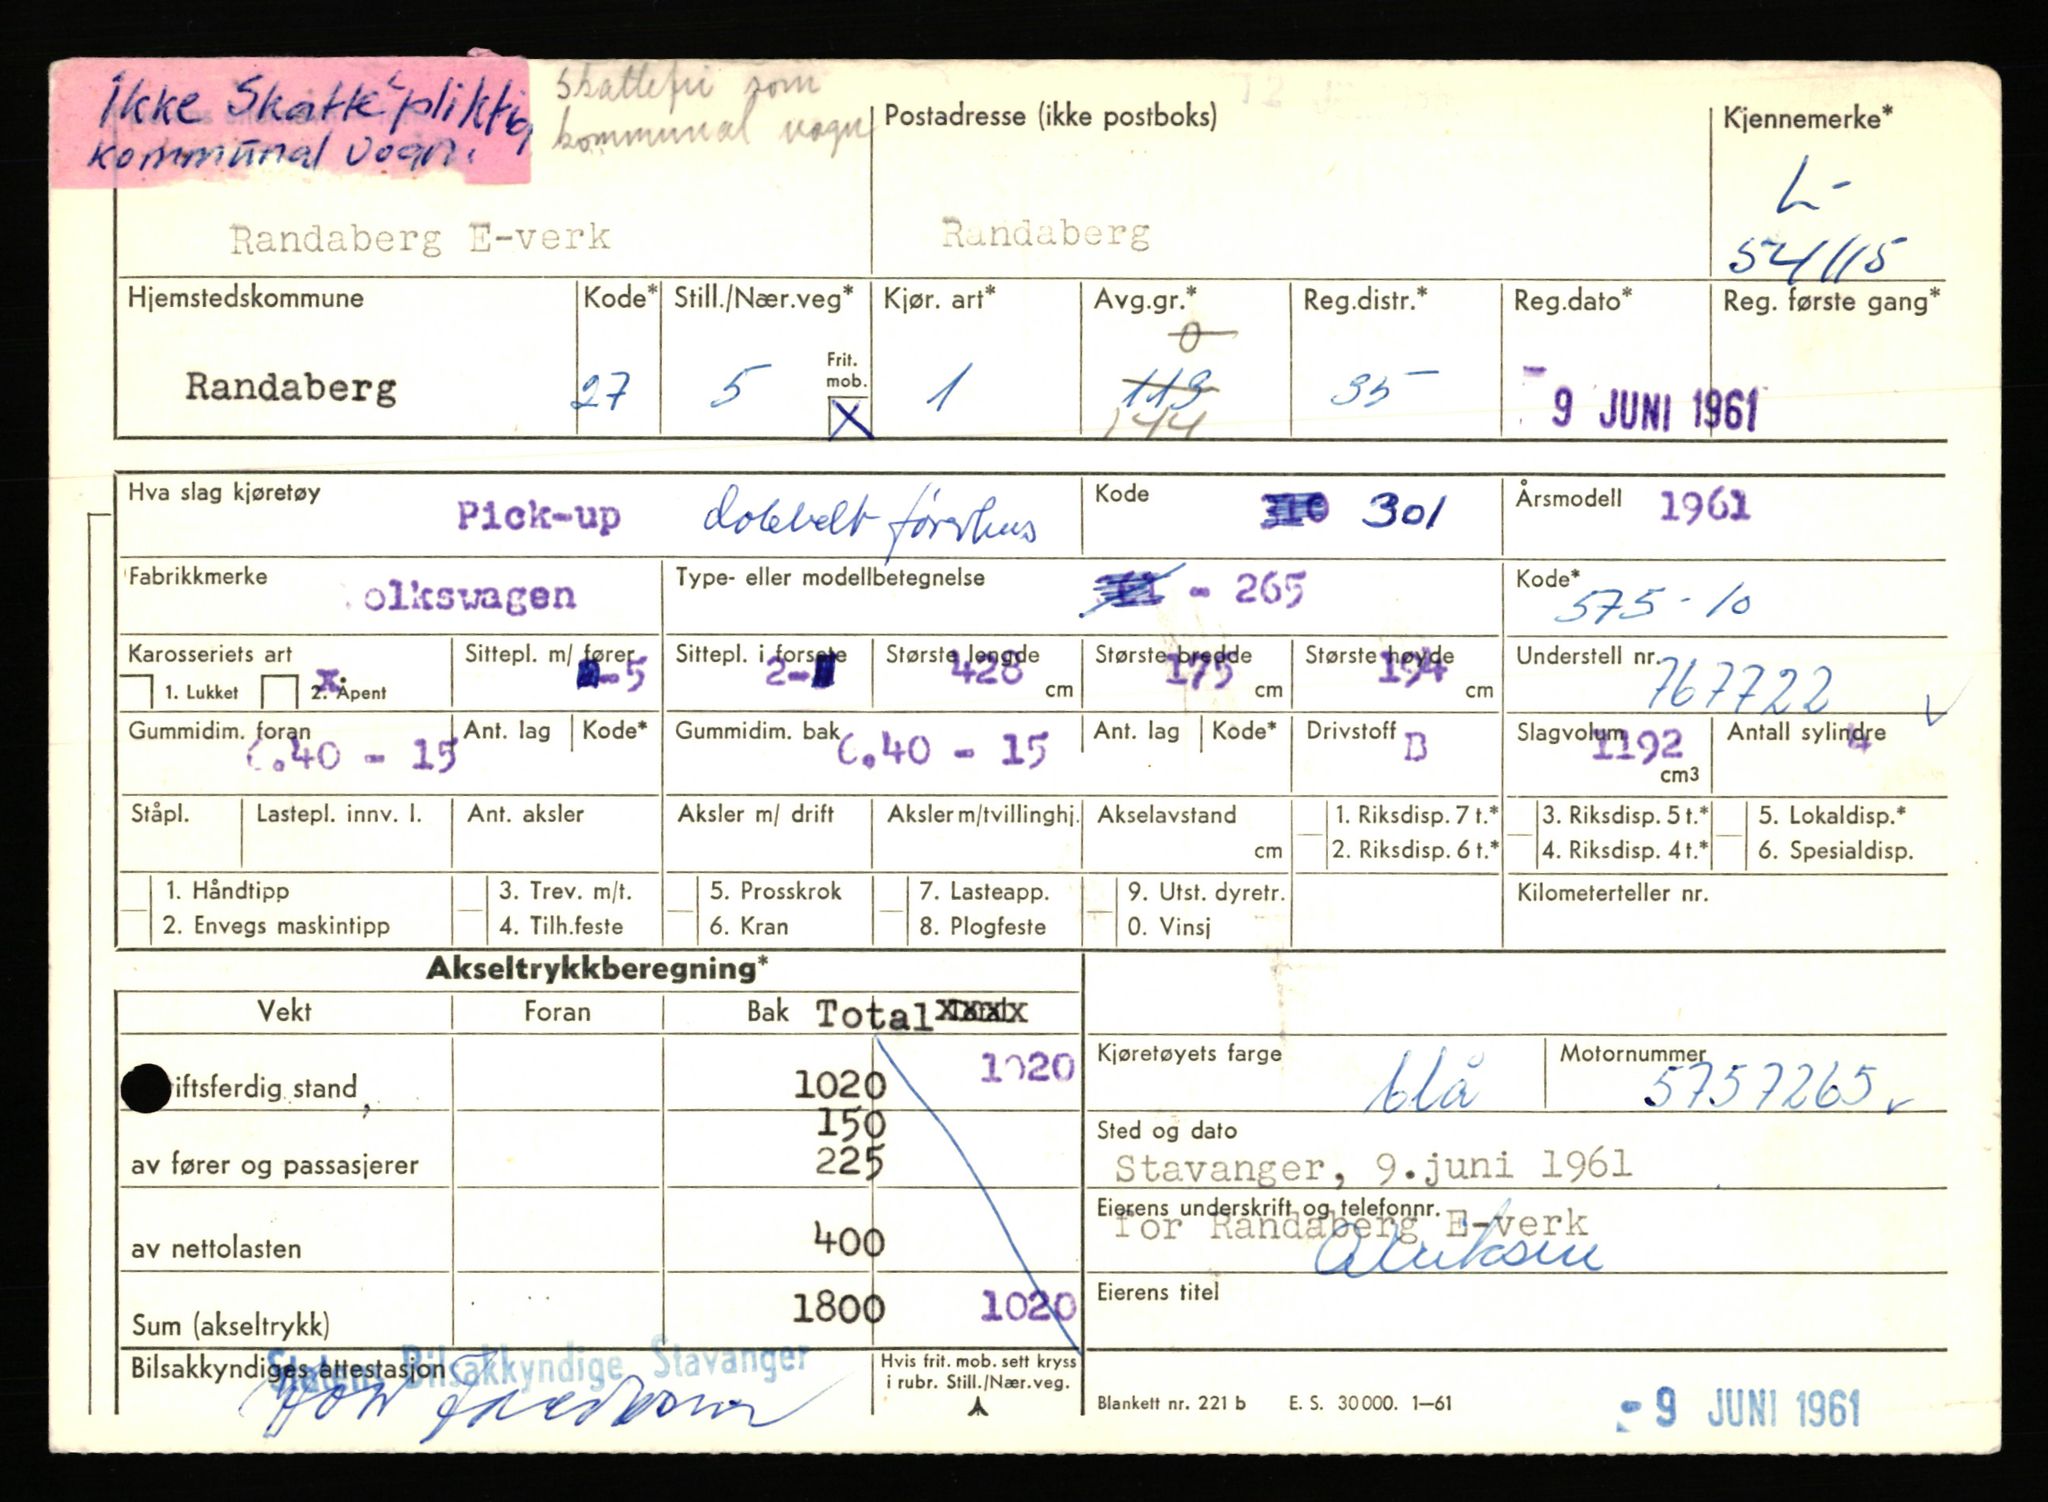 Ikke Skattepliktig
kommunal vogn.
Skattefri som
kommunal vogn
Postadresse (ikke postboks)
Kjennemerke*
L-
54115
Randaberg E-verk
Randaberg
Hjemstedskommune
Kode*
Still./Nær.veg*
Kjør. art*
Avg.gr.*
Reg.distr.*
Reg.dato*
Reg. første gang*
0
Randaberg
27
5
Frit.
mob.
X
1
113
144
35
- 9 JUNI 1961
Hva slag kjøretøy
Pick-up dobbelt førerhus
Kode
310 301
Årsmodell 1961
Fabrikkmerke
olkswagen
Type- eller modellbetegnelse
- 265
Kode*
575-10
Karosseriets art
1. Lukket
x
2. Åpent
Sittepl. m/ fører
-5
Sittepl. i forsete
2-
Største lengde
428 cm
Største bredde
175 cm
Største høyde
194 cm
Understell nr.
767722
Gummidim. foran
6.40 - 15
Ant. lag
Kode*
Gummidim. bak
6.40 - 15
Ant. lag
Kode*
Drivstoff
B
Slagvolum
1192
cm3
Antall sylindre
4
Ståpl.
Lastepl. innv. l.
Ant. aksler
Aksler m/ drift
Aksler m/tvillinghj.
Akselavstand
cm
1. Riksdisp. 7 t.*
2. Riksdisp. 6 t.*
3. Riksdisp. 5 t.*
4. Riksdisp. 4 t.*
5. Lokaldisp.*
6. Spesialdisp.
1. Håndtipp
2. Envegs maskintipp
3. Trev. m/t.
4. Tilh.feste
5. Prosskrok
6. Kran
7. Lasteapp.
8. Plogfeste
9. Utst. dyretr.
0. Vinsj
Kilometerteller nr.
Akseltrykkberegning*
Vekt
Foran
Bak
Total
iftsferdig stand,
1020
1020
150
av fører og passasjerer
225
av nettolasten
400
Sum (akseltrykk)
1800
1020
Kjøretøyets farge
blå
Motornummer
5757265
Sted og dato
Stavanger, 9.juni 1961
Eierens underskrift og telefonnr.
for Randaberg E-verk
Eierens titel
Bilsakkyndiges attestasjon
Statens Bilsakkyndige Stavanger
Hvis frit. mob. sett kryss
i rubr. Still./Nær.veg.
Blankett nr. 221 b
E. S. 30000. 1—61
- 9 JUNI 1961